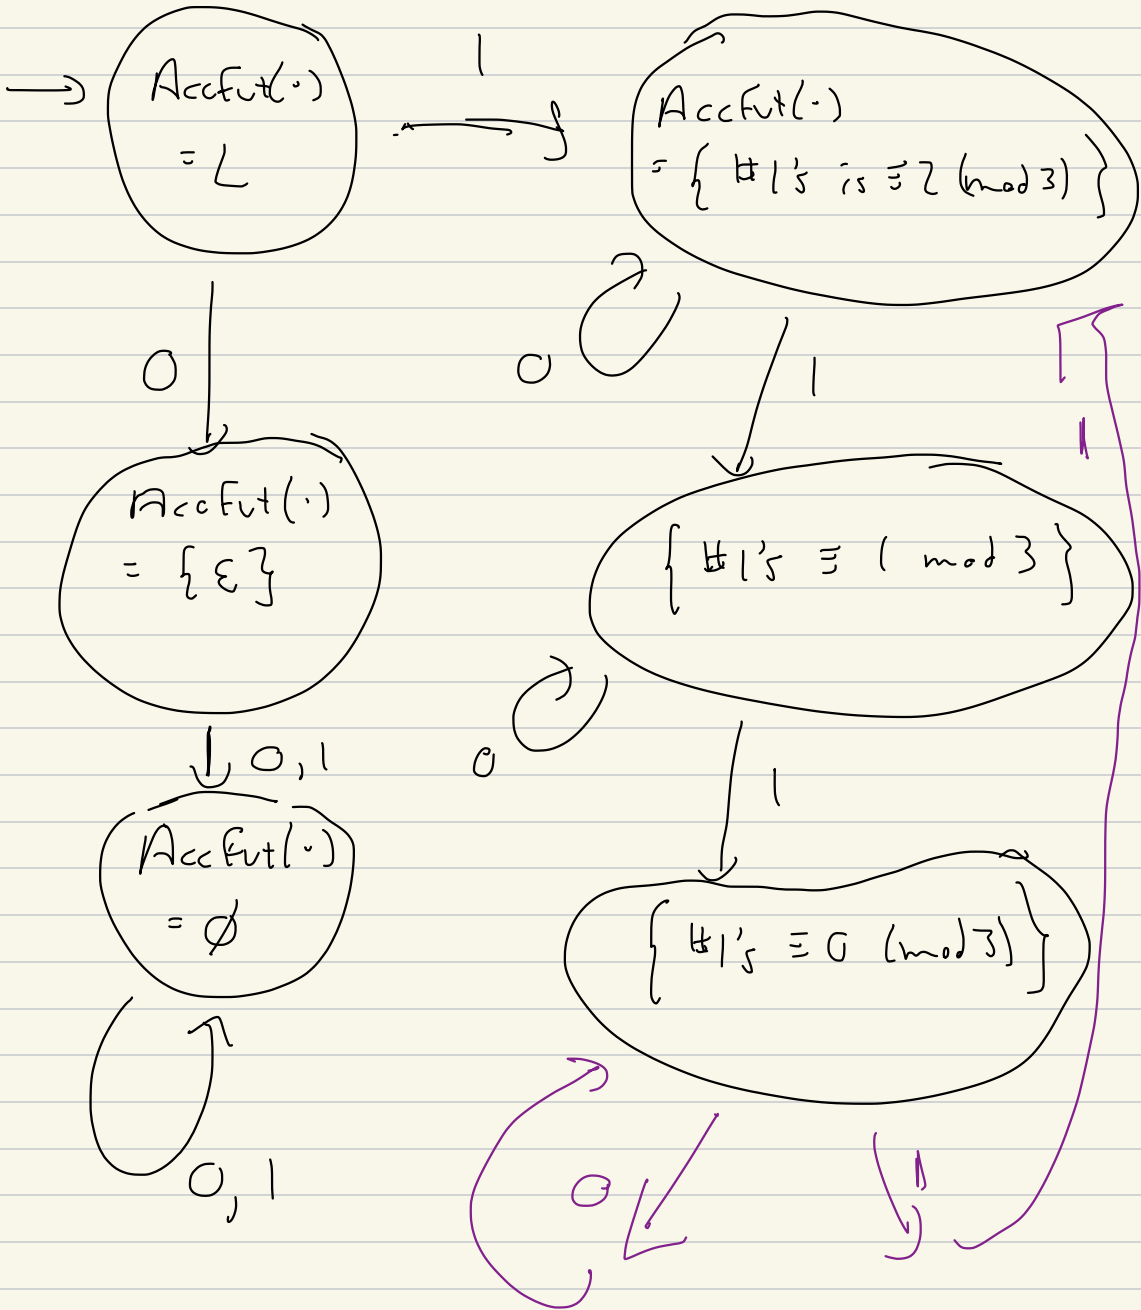 AccFut(·)
= L
1
AccFut(·)
= { #1's is ≡ 2 (mod 3) }
0
0
1
1
AccFut(·)
= {ε}
{ #1's ≡ 1 mod 3 }
0, 1
0
1
AccFut(·)
= ∅
{ #1's ≡ 0 (mod 3) }
0, 1
0
1